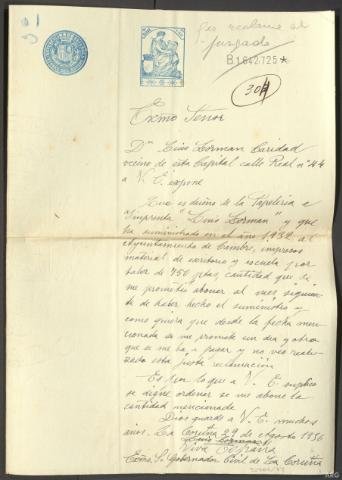 Se reclame al
juzgado
B1642725*
304
Exmo Señor
Dn Luis Lorman Caridad
vecino de esta Capital calle Real nº 44
a V. E. expone
Que es dueño de la Papeleria e
Imprenta "Luis Lorman" y que
ha suministrado en el año 1932 al
Ayuntamiento de Cambre, impresos
material de escritorio y escuela por
valor de 750 ptas, cantidad que se
me prometió abonar al mes siguien-
te de haber hecho el suministro y
como quiera que desde la fecha men-
cionada se me promete un dia y otro
que se me va a pagar y no veo reali-
zada esta justa reclamación
Es por lo que a V. E. suplico
se digne ordenar se me abone la
cantidad mencionada.
Dios guarde a V. E. muchos
años. La Coruña 29 de Agosto 1936
Luis Lorman
Viva España
Exmo. Sr Gobernador Civil de La Coruña